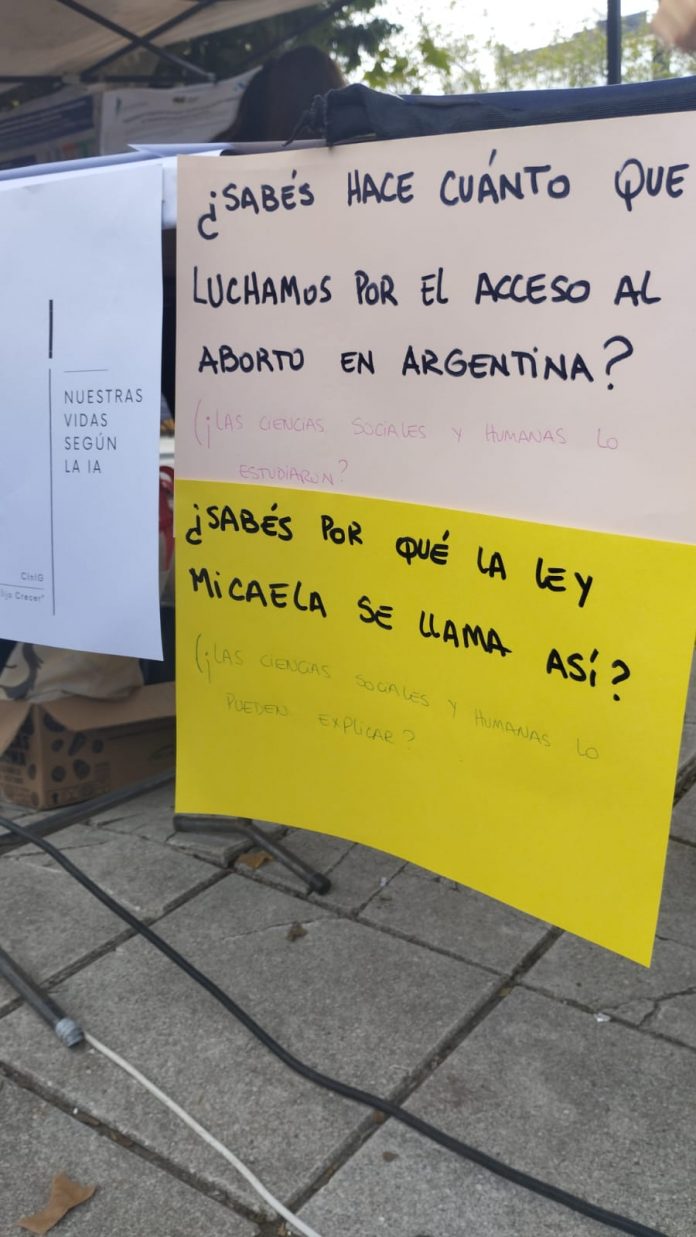 NUESTRAS
VIDAS
SEGÚN
LA IA
CInIG
Crecer"
¿SABÉS HACE CUÁNTO QUE
LUCHAMOS POR EL ACCESO AL
ABORTO EN ARGENTINA?
(¡LAS CIENCIAS SOCIALES Y HUMANAS LO
ESTUDIARON?
¿SABÉS POR QUÉ LA LEY
MICAELA SE LLAMA ASÍ?
(¡LAS CIENCIAS SOCIALES Y HUMANAS LO
PUEDEN EXPLICAR?